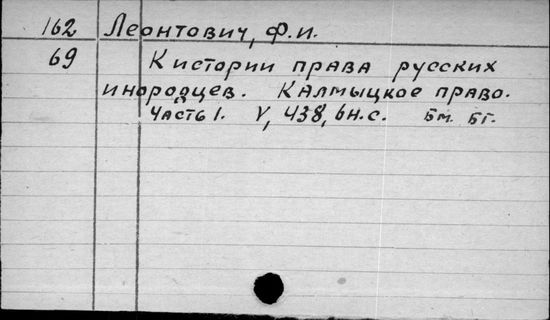 162 Леонтович, Ф.И.
69 К истории права русских
инородцев. Калмыцкое право.
Часть I. V, 438, 6н.с. Бм. Бг.